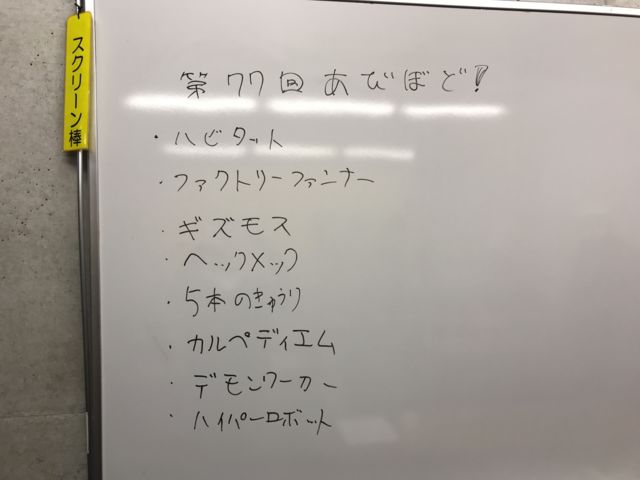 スクリーン棒
第77回あびぼど!
・ハビタット
・ファクトリーファンナー
・ギズモス
・ヘックメック
・5本のきゅうり
・カルペディエム
・デモンワーカー
・ハイパーロボット